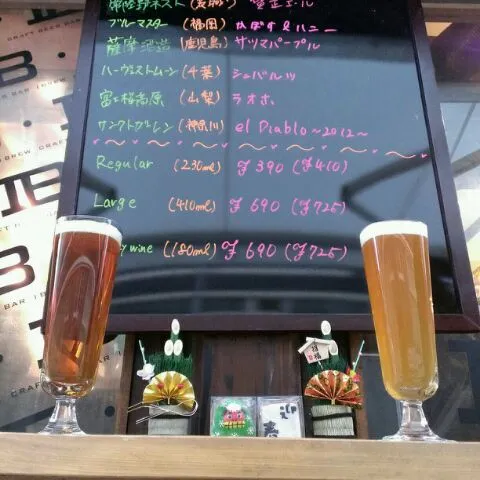 ブルーマスター (福岡) かぼす&ハニー
薩摩酒造 (鹿児島) サツマパープル
ハーヴェストムーン (千葉) シュバルツ
富士桜高原 (山梨) ラオホ
サンクトガーレン (神奈川) el Diablo～2012～
Regular (230ml) ¥390 (¥410)
Large (410ml) ¥690 (¥725)
wine (180ml) ¥690 (¥725)
迎春
CRAFT BEER BAR